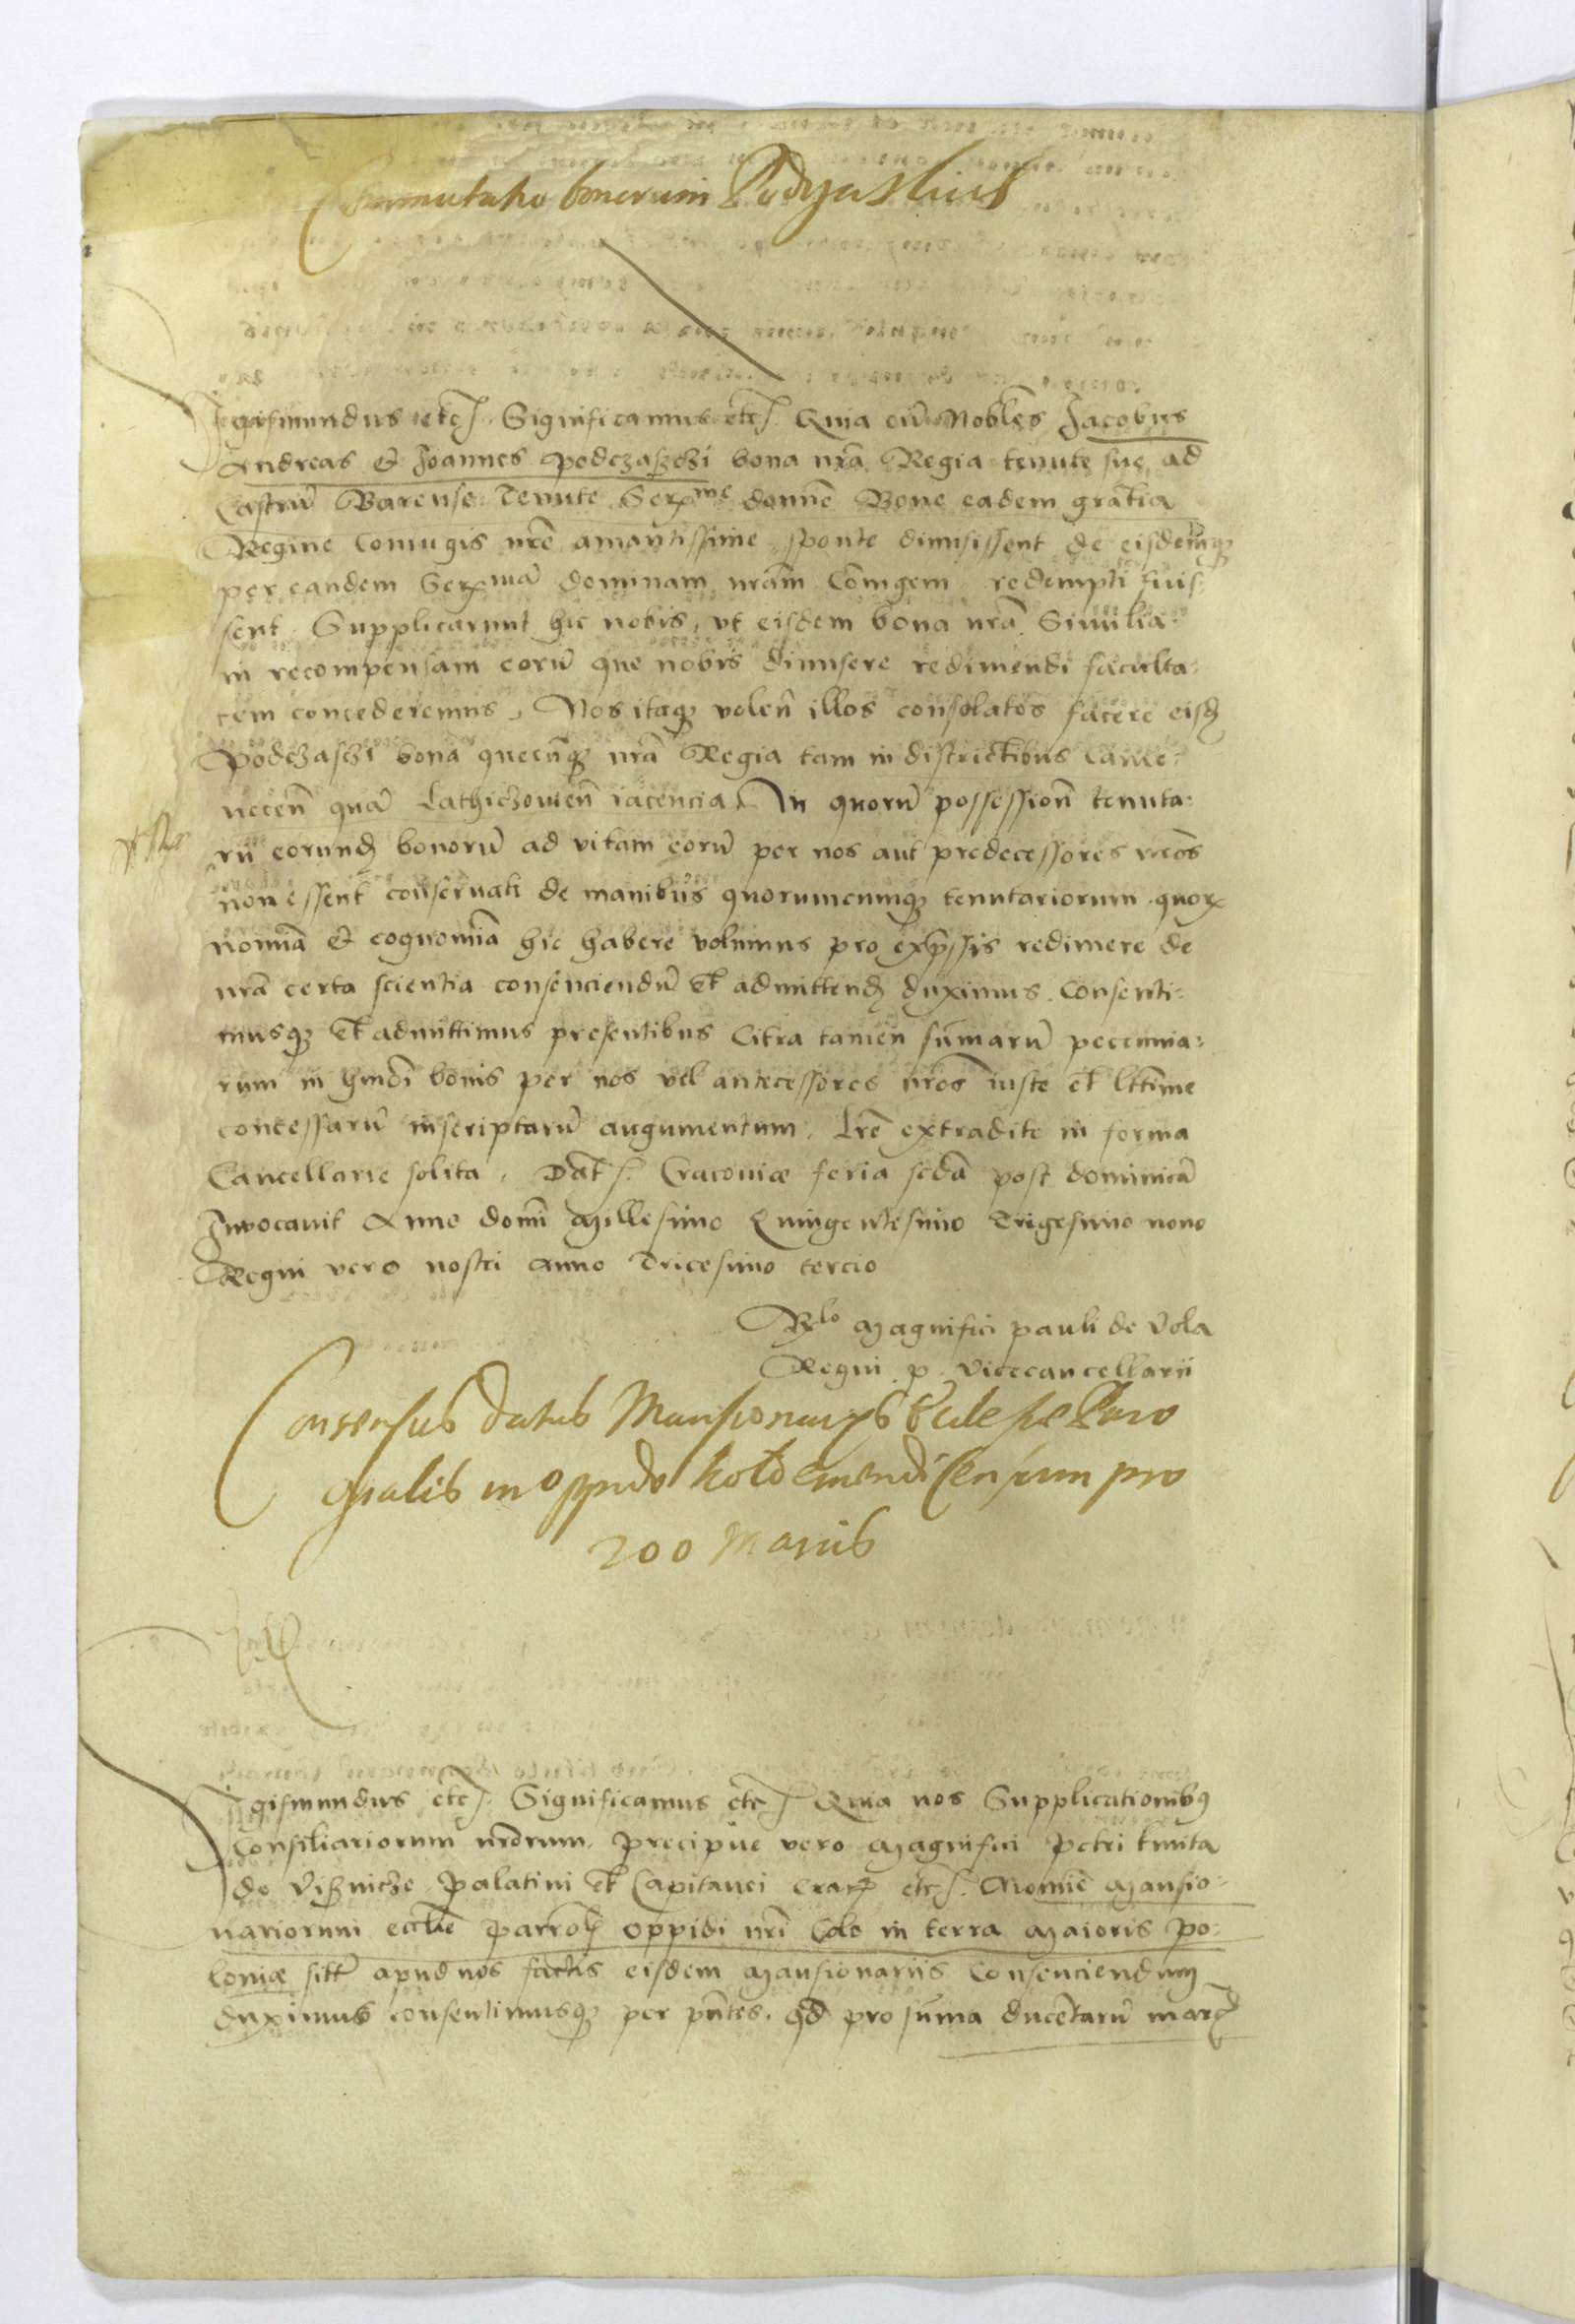 Commutatio bonorum
Sigismundus etc. Significamus etc. Quia cũ Nobłes Jacobus
Andreas et Joannes Podczaszchi bona nrã Regia tenute sue ad
Castrũ Barense Tenute Serme domne Bone eadem gratia
Regine Coniugis nrẽ amantissime sponte dimisissent de eisdemq
per eandem Sermã dominam nram Coniugem redempti fuis:
sent. Supplicarunt hic nobis, vt eisdem bona nrã Similia
in recompensam eorũ que nobis dimisere redimendi faculta:
tem concederemus, Nos itaq volen illos consolatos facere eisd
Podczaschi bona quecunq nrã Regia tam in districtibus Came:
necen quã Lathiczovien iacencia, In quorũ possession tenuta:
rii eorund bonorũ ad vitam eorũ per nos aut predecessores nros
non essent conservati de manibus quorumcumq tenutariorum quor
nomia et cognomia hic habere volumus pro expressis redimere de
nrã certa scientia consenciendũ et admittend duximus. Consenti:
musq et admittimus presentibus Citra tamen sumarũ pecunia:
rum in hmoi bonis per nos vel antecessores nros iuste et lttime
concessarũ inscriptarũ augumentum. Lre extradite in forma
Cancellarie solita. Dat. Cracoviæ feria scda post dominicã
Invocavit Anno domi Millesimo Quingentesimo Trigesimo nono
Regni vero nostri anno Tricesimo tercio
Rlo Magnifici Pauli de Vola
Regni p. Vicecancellarii
Consensus datus Mansionarys Ecclesie Paro
chialis in Oppido Kolo emendi Censum pro
200 Marcis
Sigismundus etc. Significamus etc. Quia nos Supplicationibus
Consiliariorum nrorum, precipue vero Magnifici Petri Kmita
de Visznicze Palatini et Capitanei Crac etc. Nomie Mansio:
nariorum ecclie parroch oppidi nri Colo in terra Maioris Po:
loniæ sitt apud nos factis eisdem Mansionariis Consenciendum
duximus consentimusq per pntes. qd pro suma ducentarũ marc